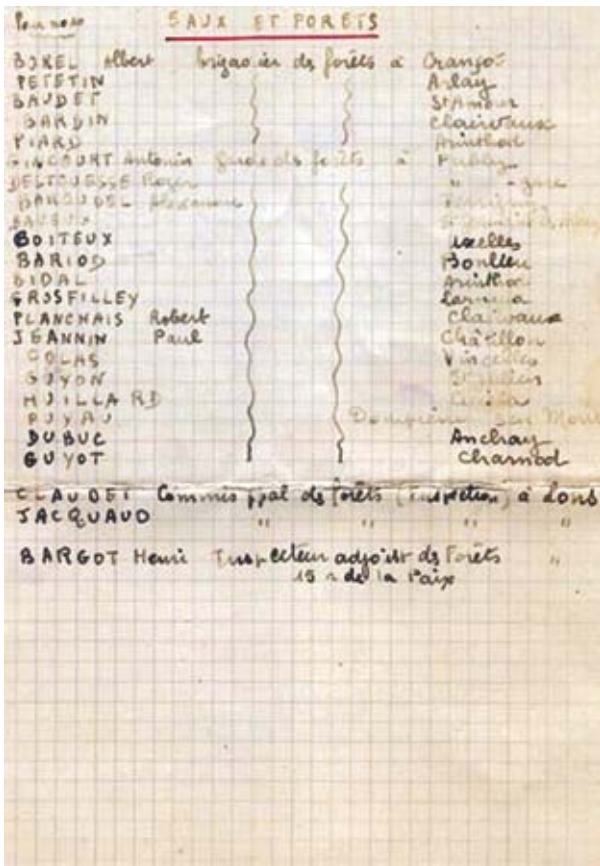 EAUX ET FORETS
BOREL Albert brigadier ds forêts à
PETETIN Arlay
BAUDET St Amour
BARDIN Clairvaux
PIARD Arinthod
GIACOURT Antonin garde ds forêts à Publy
DELTOUESSE Roger " - gare
BOITEUX Uxelles
BARIOD Bonlieu
BIDAL Arinthod
GROSFILLEY
PLANCHAIS Robert Clairvaux
JEANNIN Paul Châtillon
COLAS Vincelles
GUYON St Julien
HUILLARD
DUBUC
GUYOT Charnod
CLAUDET Commis ppal ds forêts (Inspection) à Lons
JACQUAUD " " " "
BARGOT Henri Inspecteur adjoint ds Forêts "
15 r de la Paix